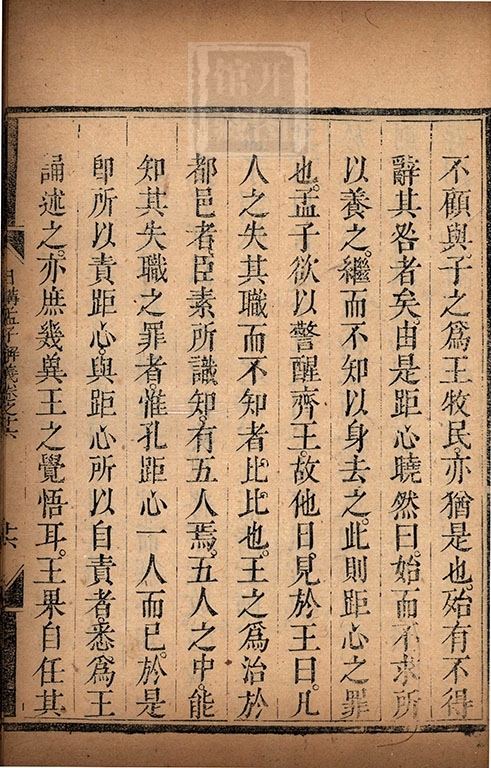 不顧與。子之爲王牧民。亦猶是也。殆有不得
辭其咎者矣。由是距心曉然曰。始而不求所
以養之。繼而不知以身去之。此則距心之罪
也。孟子欲以警醒齊王。故他日。見於王曰。凡
人之失其職而不知者。比比也。王之爲治於
都邑者。臣素所識知。有五人焉。五人之中。能
知其失職之罪者。惟孔距心一人而已。於是
卽所以責距心。與距心所以自責者。悉爲王
誦述之。亦庶幾冀王之覺悟耳。王果自任其
日講孟子解義卷之十六